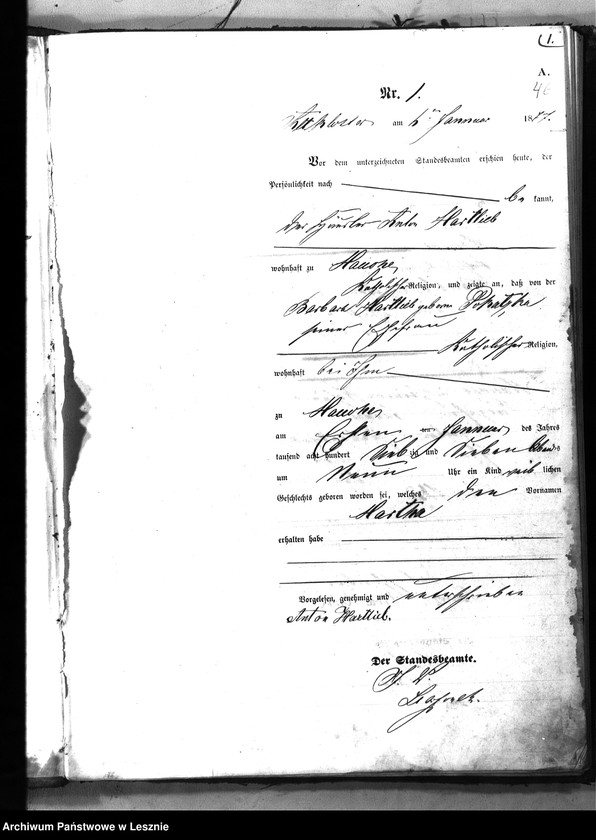 1.
A.
46
Nr. 1.
am Januar 1877.
Vor dem unterzeichneten Standesbeamten erschien heute, der
Persönlichkeit nach
be kannt,
der Häusler Anton Hartlieb
wohnhaft zu
Katholischer Religion, und zeigte an, daß von der
Barbara Hartlieb geborene
seiner Ehefrau
Katholischer Religion,
wohnhaft bei ihm
zu
am Ersten Januar des Jahres
tausend acht hundert Sieb zig und Sieben Abends
um Neun Uhr ein Kind weib lichen
Geschlechts geboren worden sei, welches den Vornamen
Martha
erhalten habe
Vorgelesen, genehmigt und unterschrieben
Anton Hartlieb.
Der Standesbeamte.
Archiwum Państwowe w Lesznie